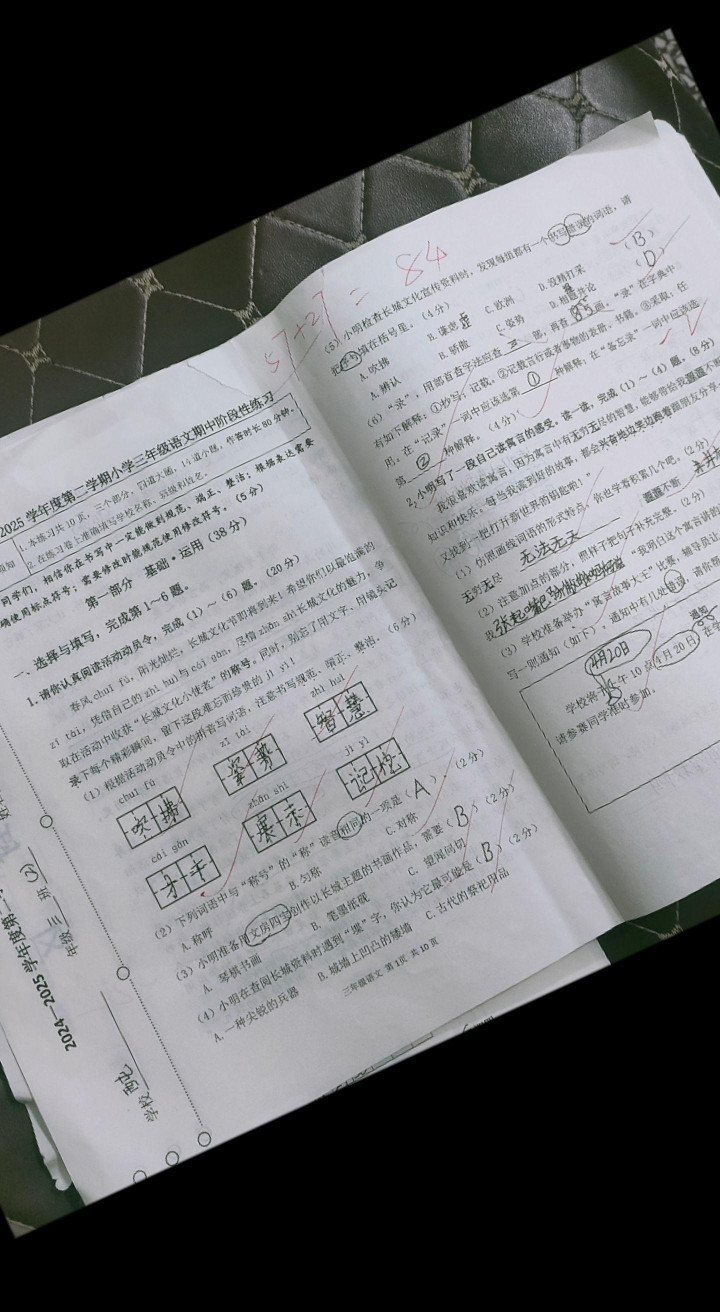 2025 学年度第二学期小学三年级语文期中阶段性练习
1.本练习共 10 页，三个部分，
作答时长 80 分钟。
2.在练习卷上准确填写学校名称、班级和姓名。
同学们，相信你在书写中一定能做到规范、端正、整洁；根据表达需要
确使用标点符号；需要修改时能规范使用修改符号。（5 分）
第一部分 基础·运用（38 分）
一、选择与填写，完成第 1～6 题。
1.请你认真阅读活动动员令，完成（1）～（6）题。（20 分）
春风 chuī fú，阳光灿烂，长城文化节即将到来！希望你们以最饱满的
zī tài，凭借自己的 zhì huì 与 cái gàn，尽情 zhǎn shì 长城文化的魅力，争
取在活动中收获“长城文化小使者”的称号。同时，别忘了用文字、用镜头记
录下每个精彩瞬间，留下这段难忘而珍贵的 jì yì！
（1）根据活动动员令中的拼音写词语，注意书写规范、端正、整洁。（6 分）
chuī fú zī tài zhì huì
吹拂 姿势 智慧
cái gàn zhǎn shì jì yì
才干 展示 记忆
（2）下列词语中与“称号”的“称”读音相同的一项是（A）。（2 分）
A.称呼 B.匀称 C.对称
（3）小明准备用文房四宝创作以长城主题的书画作品，需要（B）（2 分）
A. 琴棋书画 B. 笔墨纸砚 C. 望闻问切
（4）小明在查阅长城资料时遇到“堞”字，你认为它最可能是（B）（2 分）
A.一种尖锐的兵器 B.城墙上凹凸的矮墙 C.古代的祭祀用品
三年级语文 第 1页 共 10 页
2024—2025 学年度第
年级 三 班 (3)
学校
57+27=84
（5）小明检查长城文化宣传资料时，发现每组都有一个书写错误的词语，请
把序号填在括号里。（4 分）
A.吹拂 B.谦虚 C.欧洲 D.没精打采 （B）
A.辨认 B.骄傲 C.姿势 D.相提并论 （D）
（6）“录”，用部首查字法应查
部，再查
画。“录”在字典中
有如下解释：①抄写；记载。②记载言行或者事物的表册、书籍。③采取；任
用。在“记录”一词中应该选第 ① 种解释；在“备忘录”一词中应该选
第 ② 种解释。（4分）
2.小明写了一段自己读寓言的感受。读一读，完成（1）～（4）题。（8 分）
我很喜欢读寓言，因为寓言中有无穷无尽的智慧，能够带给我源源不断
知识和快乐。每当我读到好的故事，都会兴奋地边笑边跑着跟朋友分享
又找到一把打开新世界的钥匙啦！”
（1）仿照画线词语的形式特点，你也学着积累几个吧。（2 分）
无穷无尽 无法无天 源源不断
（2）注意加点的部分，照样子把句子补充完整。（2 分）
“我明白这个寓言讲的
（3）学校准备举办“寓言故事大王”比赛，辅导员让
写一则通知（如下）。通知中有几处错误，请你帮
通知
4月20日
学校将于 午 10 点 4 月 20 日 在学
请参赛同学准时参加。